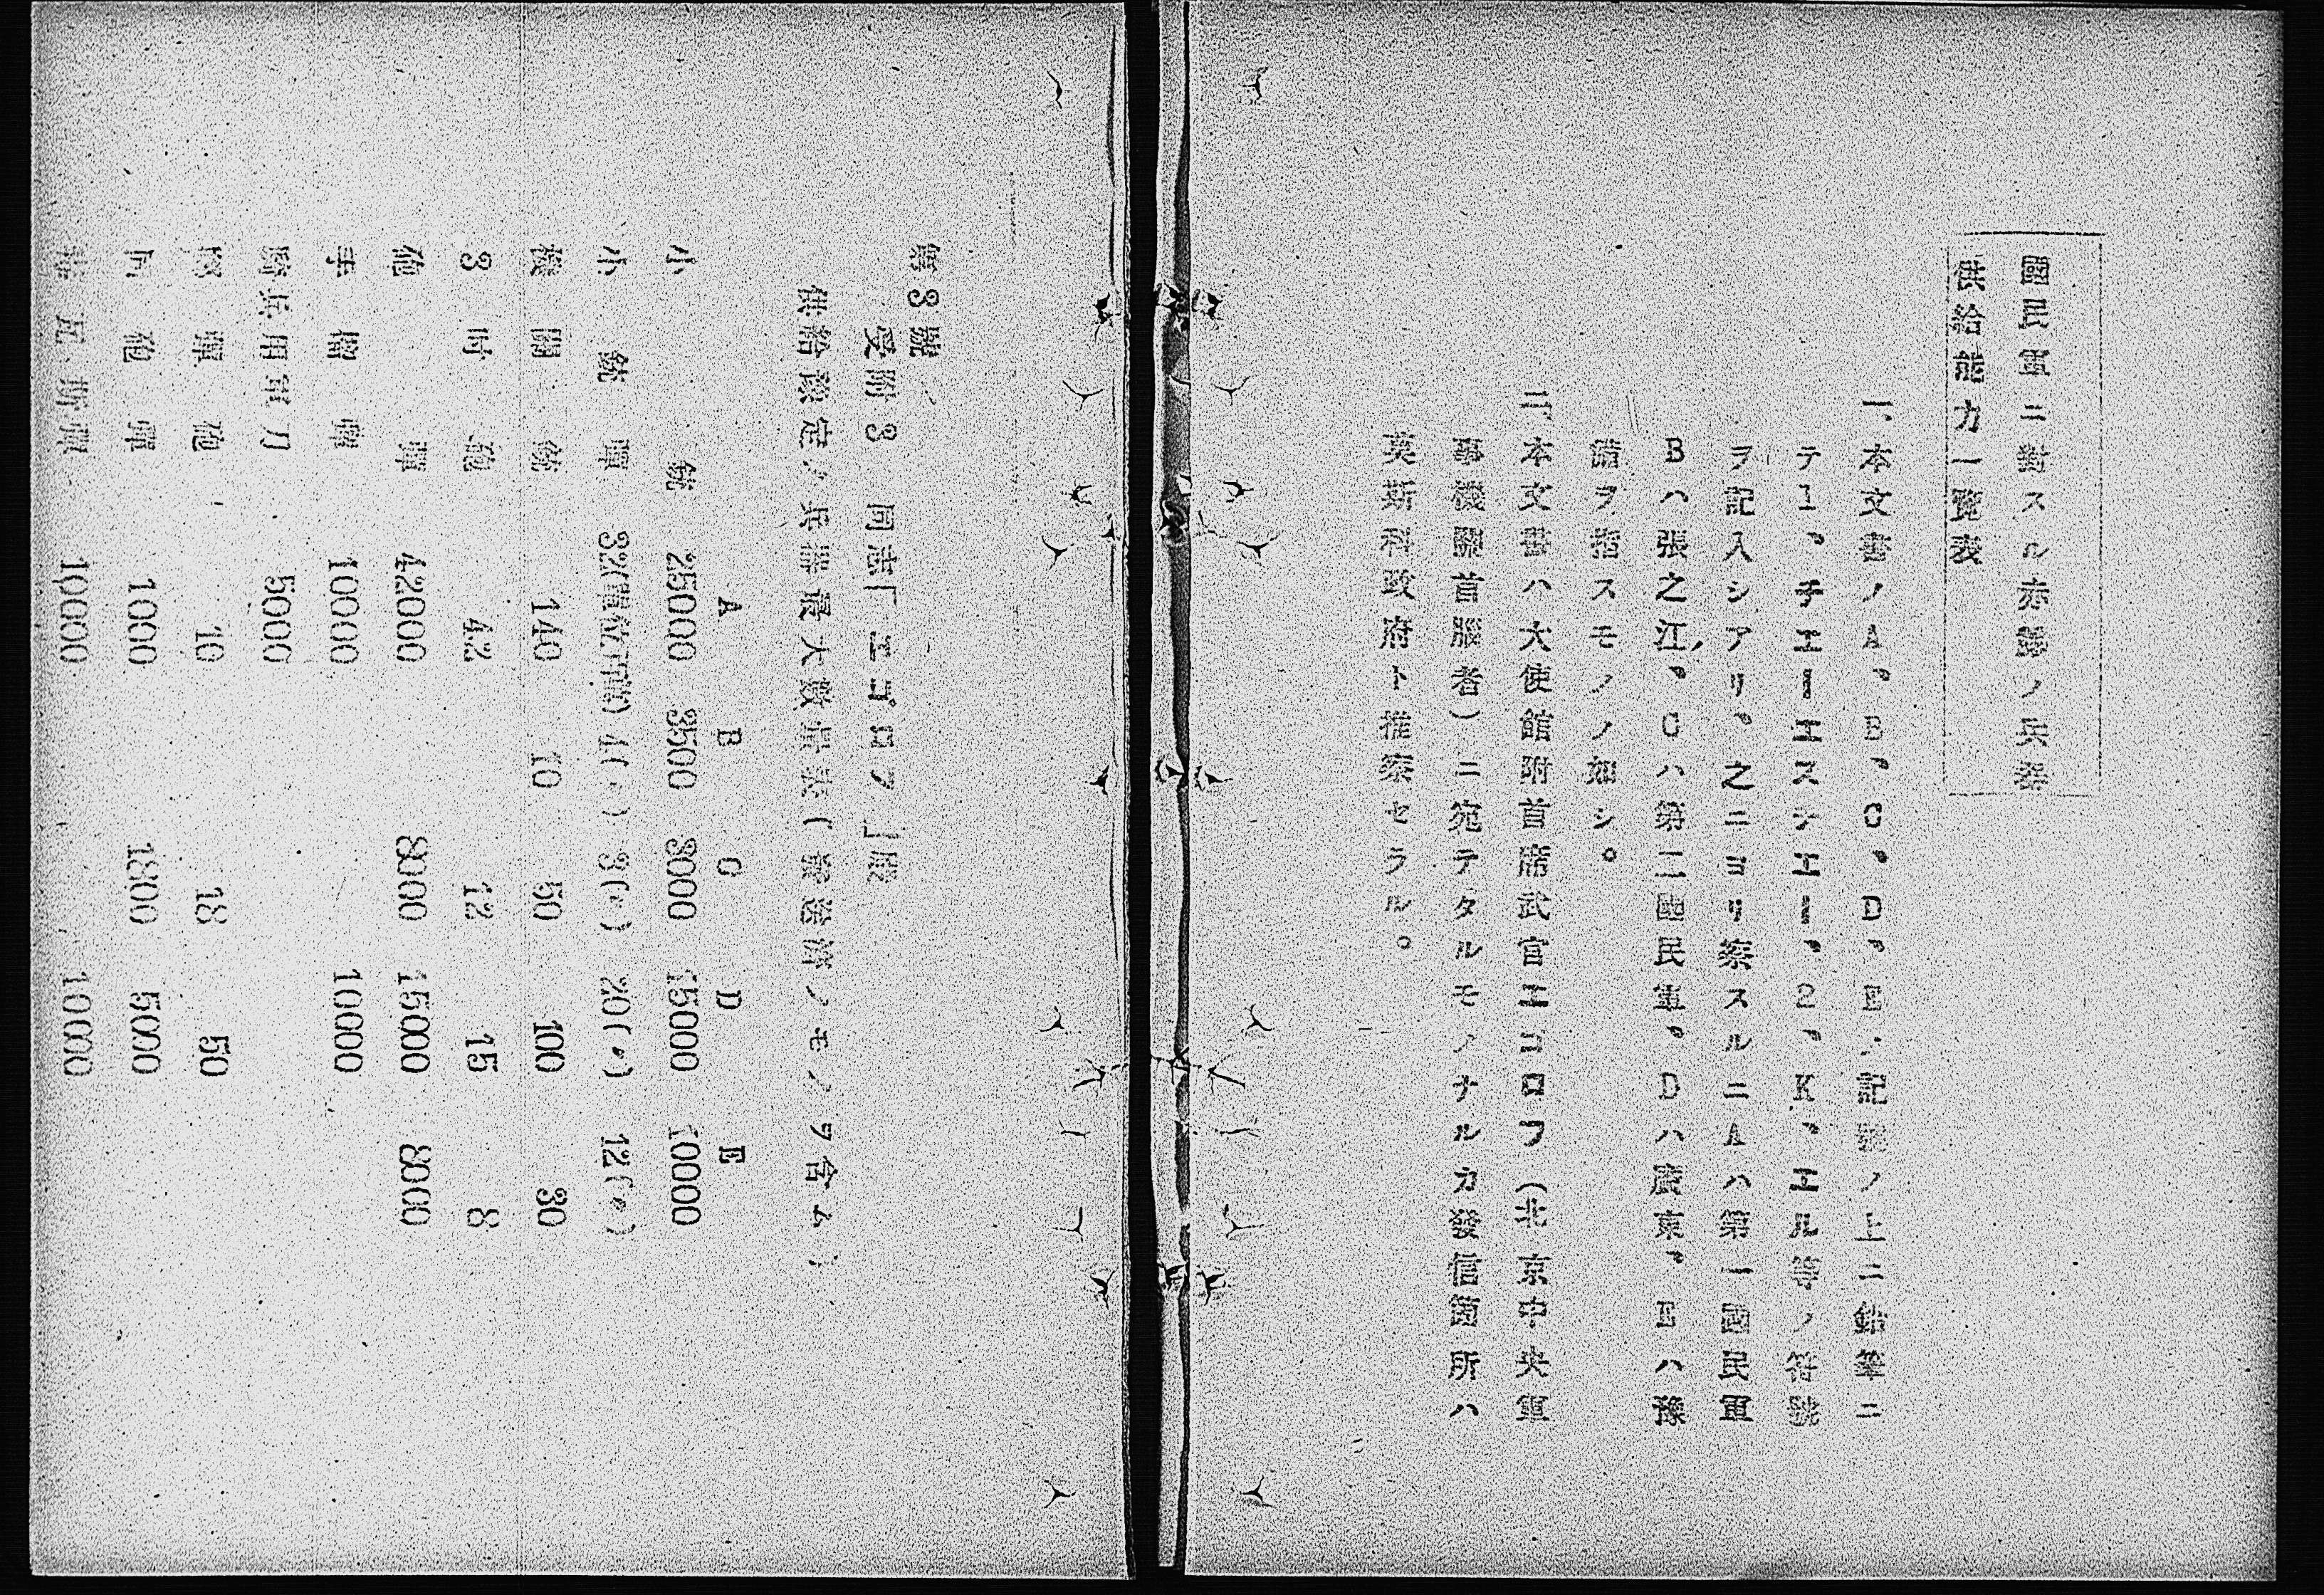 國民軍ニ對スル赤露ノ兵器
供給能力一覽表
一、本文書ノA、B、C、D、E、記號ノ上ニ鉛筆ニ
テ1、チエーエスチエー、2、K、エル等ノ符號
ヲ記入シアリ、之ニヨリ察スルニAハ第一國民軍
Bハ張之江、Cハ第二國民軍、Dハ廣東、Eハ豫
備ヲ指スモノノ如シ。
二、本文書ハ大使館附首席武官エゴロフ(北京中央軍
事機關首腦者)ニ宛テタルモノナルカ發信箇所ハ
莫斯科政府ト推察セラル。
第3號
受附3 同志「エゴロフ」殿
供給豫定ノ兵器最大數量表(輸送濟ノモノヲ含ム)
A B C D E
小銃 25000 3500 3000 15000 10000
小銃彈 32(單位百萬) 4(〃) 3(〃) 20(〃) 12(〃)
機關銃 140 10 50 100 30
3吋砲 42 12 15 8
砲彈 42000 8000 15000 8000
手榴彈 10000 10000
騎兵用軍刀 5000
彈砲 10 18 50
同砲彈 1000 1800 5000
瓦斯彈 10000 10000